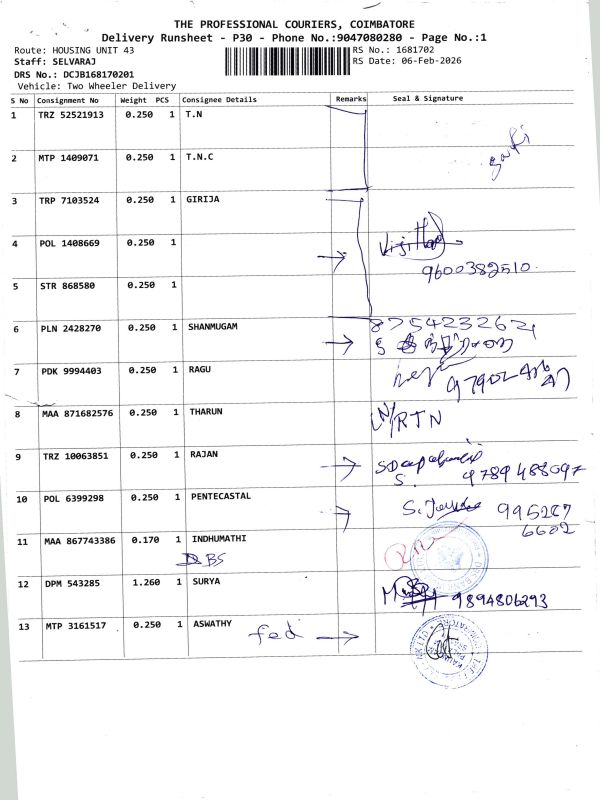 THE PROFESSIONAL COURIERS, COIMBATORE
Delivery Runsheet - P30 - Phone No.:9047080280 - Page No.:1
Route: HOUSING UNIT 43
RS No.: 1681702
Staff: SELVARAJ
RS Date: 06-Feb-2026
DRS No.: DCJB168170201
Vehicle: Two Wheeler Delivery
S No Consignment No Weight PCS Consignee Details Remarks Seal & Signature
1 TRZ 52521913 0.250 1 T.N
2 MTP 1409071 0.250 1 T.N.C
3 TRP 7103524 0.250 1 GIRIJA
4 POL 1408669 0.250 1
9600382510
5 STR 868580 0.250 1
6 PLN 2428270 0.250 1 SHANMUGAM 8754232621
7 PDK 9994403 0.250 1 RAGU
8 MAA 871682576 0.250 1 THARUN N/RTN
9 TRZ 10063851 0.250 1 RAJAN
S. 9789488097
10 POL 6399298 0.250 1 PENTECASTAL 995287
6602
11 MAA 867743386 0.170 1 INDHUMATHI
BS
12 DPM 543285 1.260 1 SURYA 9894806293
13 MTP 3161517 0.250 1 ASWATHY
fed